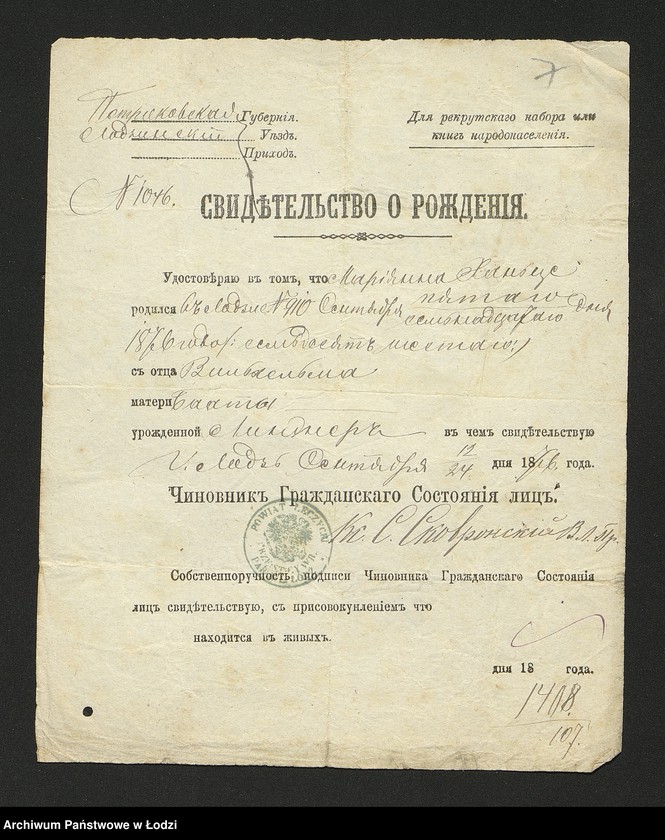 7
Петроковская Губернія.
Лодзинскій Уѣздъ.
Приходъ.
Для рекрутскаго набора или
книгъ народонаселенія.
№ 1046.
СВИДѢТЕЛЬСТВО О РОЖДЕНІЯ.
Удостовѣряю въ томъ, что Маріянна
пятаго
родился въ Лодзи № 910 Сентября семьнадцатаго дня
1876 года (: семьдесятъ шестаго :)
съ отца Вильхельма
матери Бааты
урожденной Линднеръ въ чемъ свидѣтельствую
г. Лодзь Сентября 12/24 дня 1876. года.
Чиновникъ Гражданскаго Состоянія лицъ.
Кс. С. Сковронскій
POWIAT ŁĘCZYCKI
Собственноручность подписи Чиновника Гражданскаго Состоянія
лицъ свидѣтельствую, съ присовокупленіемъ что
находится въ живыхъ.
дня 18 года.
1408.
107.
Archiwum Państwowe w Łodzi